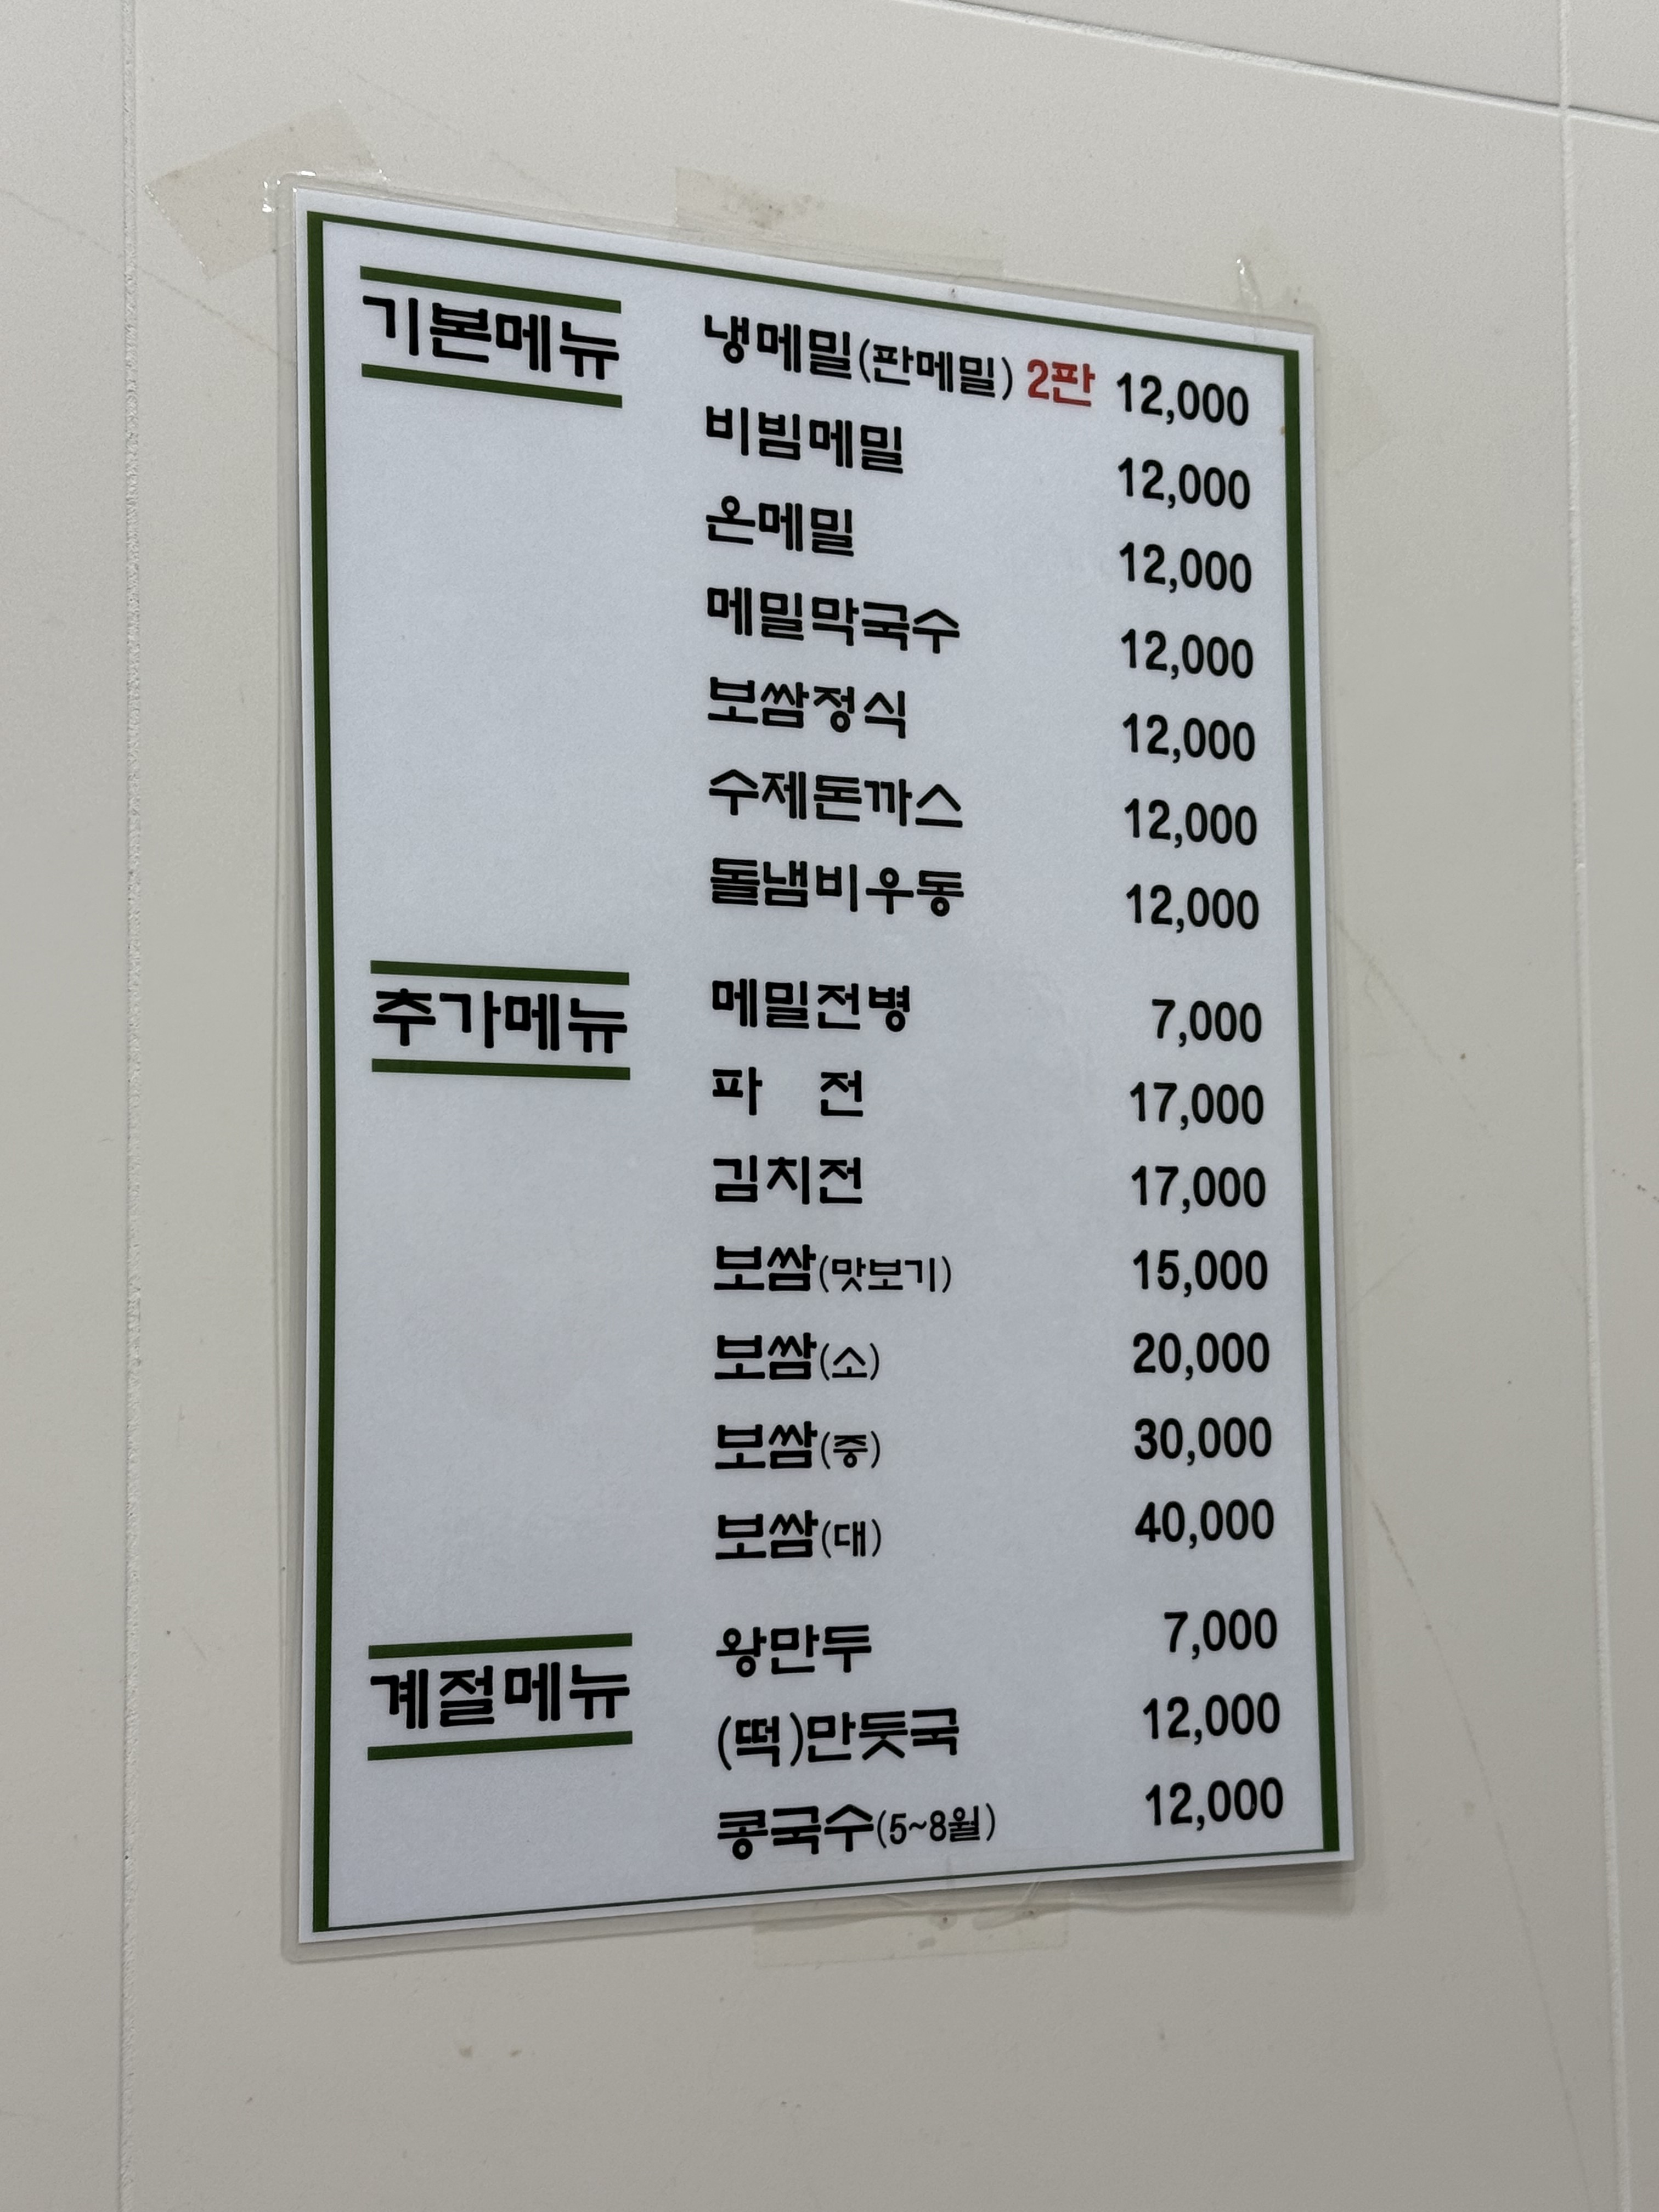 기본메뉴
냉메밀(판메밀) 2판 12,000
비빔메밀 12,000
온메밀 12,000
메밀막국수 12,000
보쌈정식 12,000
수제돈까스 12,000
돌냄비우동 12,000
추가메뉴
메밀전병 7,000
파 전 17,000
김치전 17,000
보쌈(맛보기) 15,000
보쌈(소) 20,000
보쌈(중) 30,000
보쌈(대) 40,000
계절메뉴
왕만두 7,000
(떡)만둣국 12,000
콩국수(5~8월) 12,000